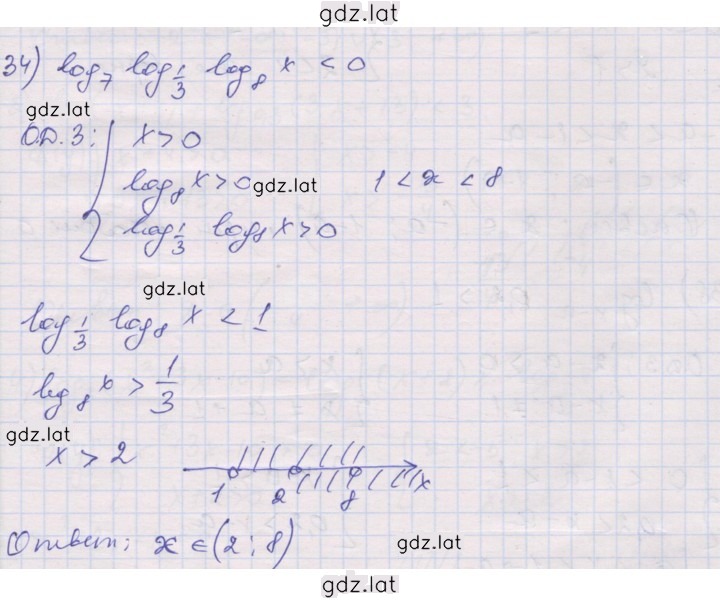 gdz.lat
34) log₇ log_{1/3} log₈ x < 0
gdz.lat
О.Д.З: { x > 0
log₈ x > 0 gdz.lat 1 < x < 8
log_{1/3} log₈ x > 0
gdz.lat
log_{1/3} log₈ x < 1
log₈ x > 1/3
gdz.lat
x > 2
1 2 8 x
Ответ: x ∈ (2; 8) gdz.lat
gdz.lat